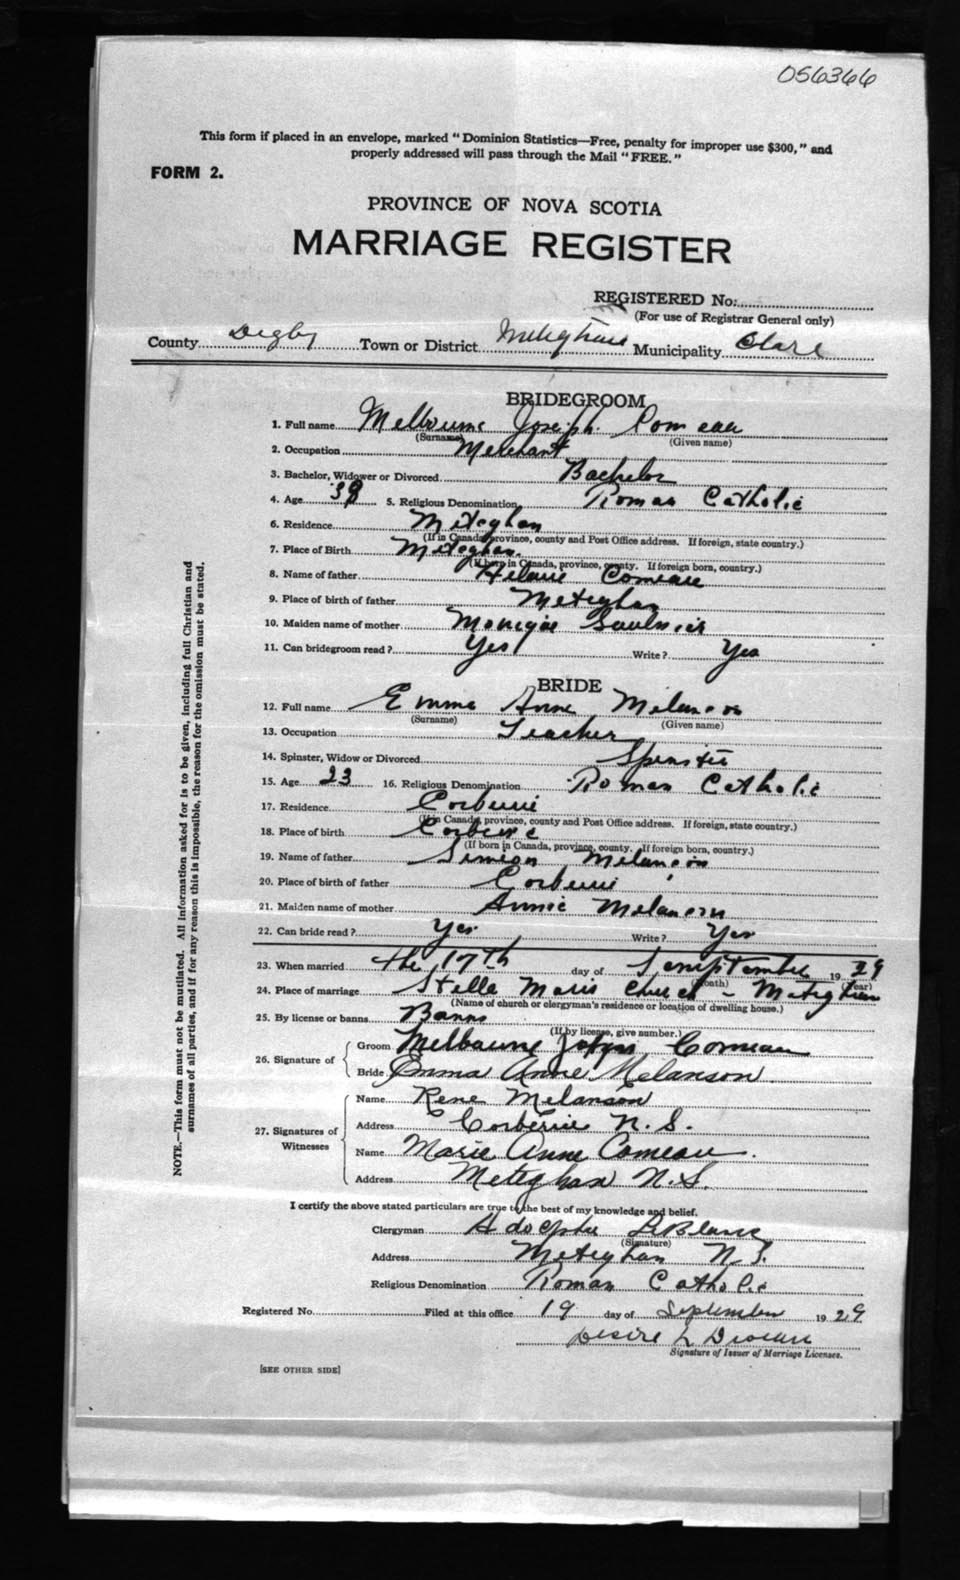 056366
This form if placed in an envelope, marked "Dominion Statistics—Free, penalty for improper use $300," and
properly addressed will pass through the Mail "FREE."
FORM 2.
PROVINCE OF NOVA SCOTIA
MARRIAGE REGISTER
REGISTERED No:
(For use of Registrar General only)
County Digby Town or District Meteghan Municipality Clare
BRIDEGROOM
1. Full name Melbourne Joseph Comeau
(Surname) (Given name)
2. Occupation Merchant
3. Bachelor, Widower or Divorced Bachelor
4. Age 38 5. Religious Denomination Roman Catholic
6. Residence Meteghan
(If in Canada, province, county and Post Office address. If foreign, state country.)
7. Place of Birth Meteghan
(If born in Canada, province, county. If foreign born, country.)
8. Name of father Hilaire Comeau
9. Place of birth of father Meteghan
10. Maiden name of mother Monique Saulnier
11. Can bridegroom read? Yes Write? Yes
BRIDE
12. Full name Emma Anne Melanson
(Surname) (Given name)
13. Occupation Teacher
14. Spinster, Widow or Divorced Spinster
15. Age 23 16. Religious Denomination Roman Catholic
17. Residence Corberrie
(If in Canada, province, county and Post Office address. If foreign, state country.)
18. Place of birth Corberrie
(If born in Canada, province, county. If foreign born, country.)
19. Name of father Simeon Melanson
20. Place of birth of father Corberrie
21. Maiden name of mother Annie Melanson
22. Can bride read? Yes Write? Yes
23. When married the 17th day of September 1929
(Month) (Year)
24. Place of marriage Stella Maris Church - Meteghan
(Name of church or clergyman's residence or location of dwelling house.)
25. By license or banns Banns
(If by license, give number.)
26. Signature of Groom Melbourne Comeau
Bride Emma Anne Melanson
27. Signatures of Witnesses
Name Rene Melanson
Address Corberrie N.S.
Name Marie Anne Comeau.
Address Meteghan N.S.
I certify the above stated particulars are true to the best of my knowledge and belief.
Clergyman Adolphe LeBlanc
(Signature)
Address Meteghan N.S.
Religious Denomination Roman Catholic
Registered No. Filed at this office 19 day of September 1929
Desire L
Signature of Issuer of Marriage Licenses.
[SEE OTHER SIDE]
NOTE.—This form must not be mutilated. All information asked for is to be given, including full Christian and
surnames of all parties, and if for any reason this is impossible, the reason for the omission must be stated.